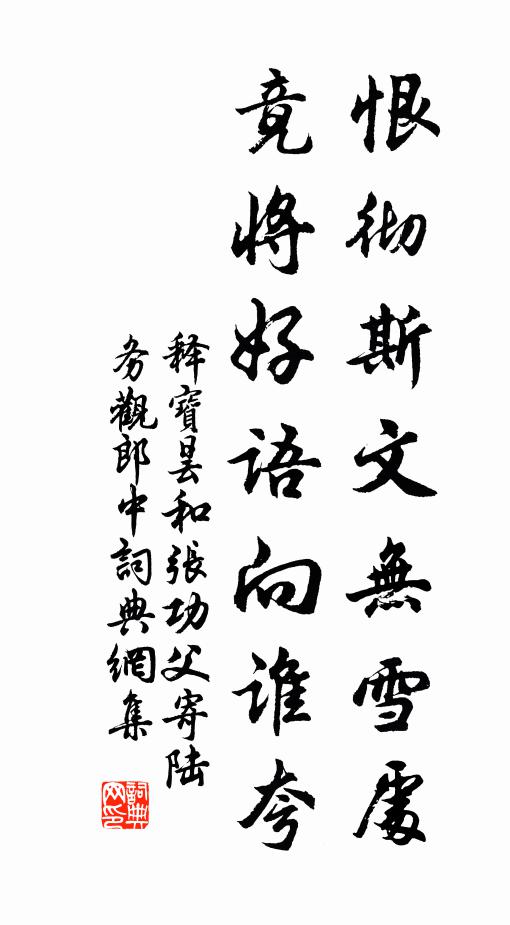 恨彻斯文無雪處
竟將好語向谁夸
释寶曇和張功父寄陆
务觀郎中詞典網集
詞典网印